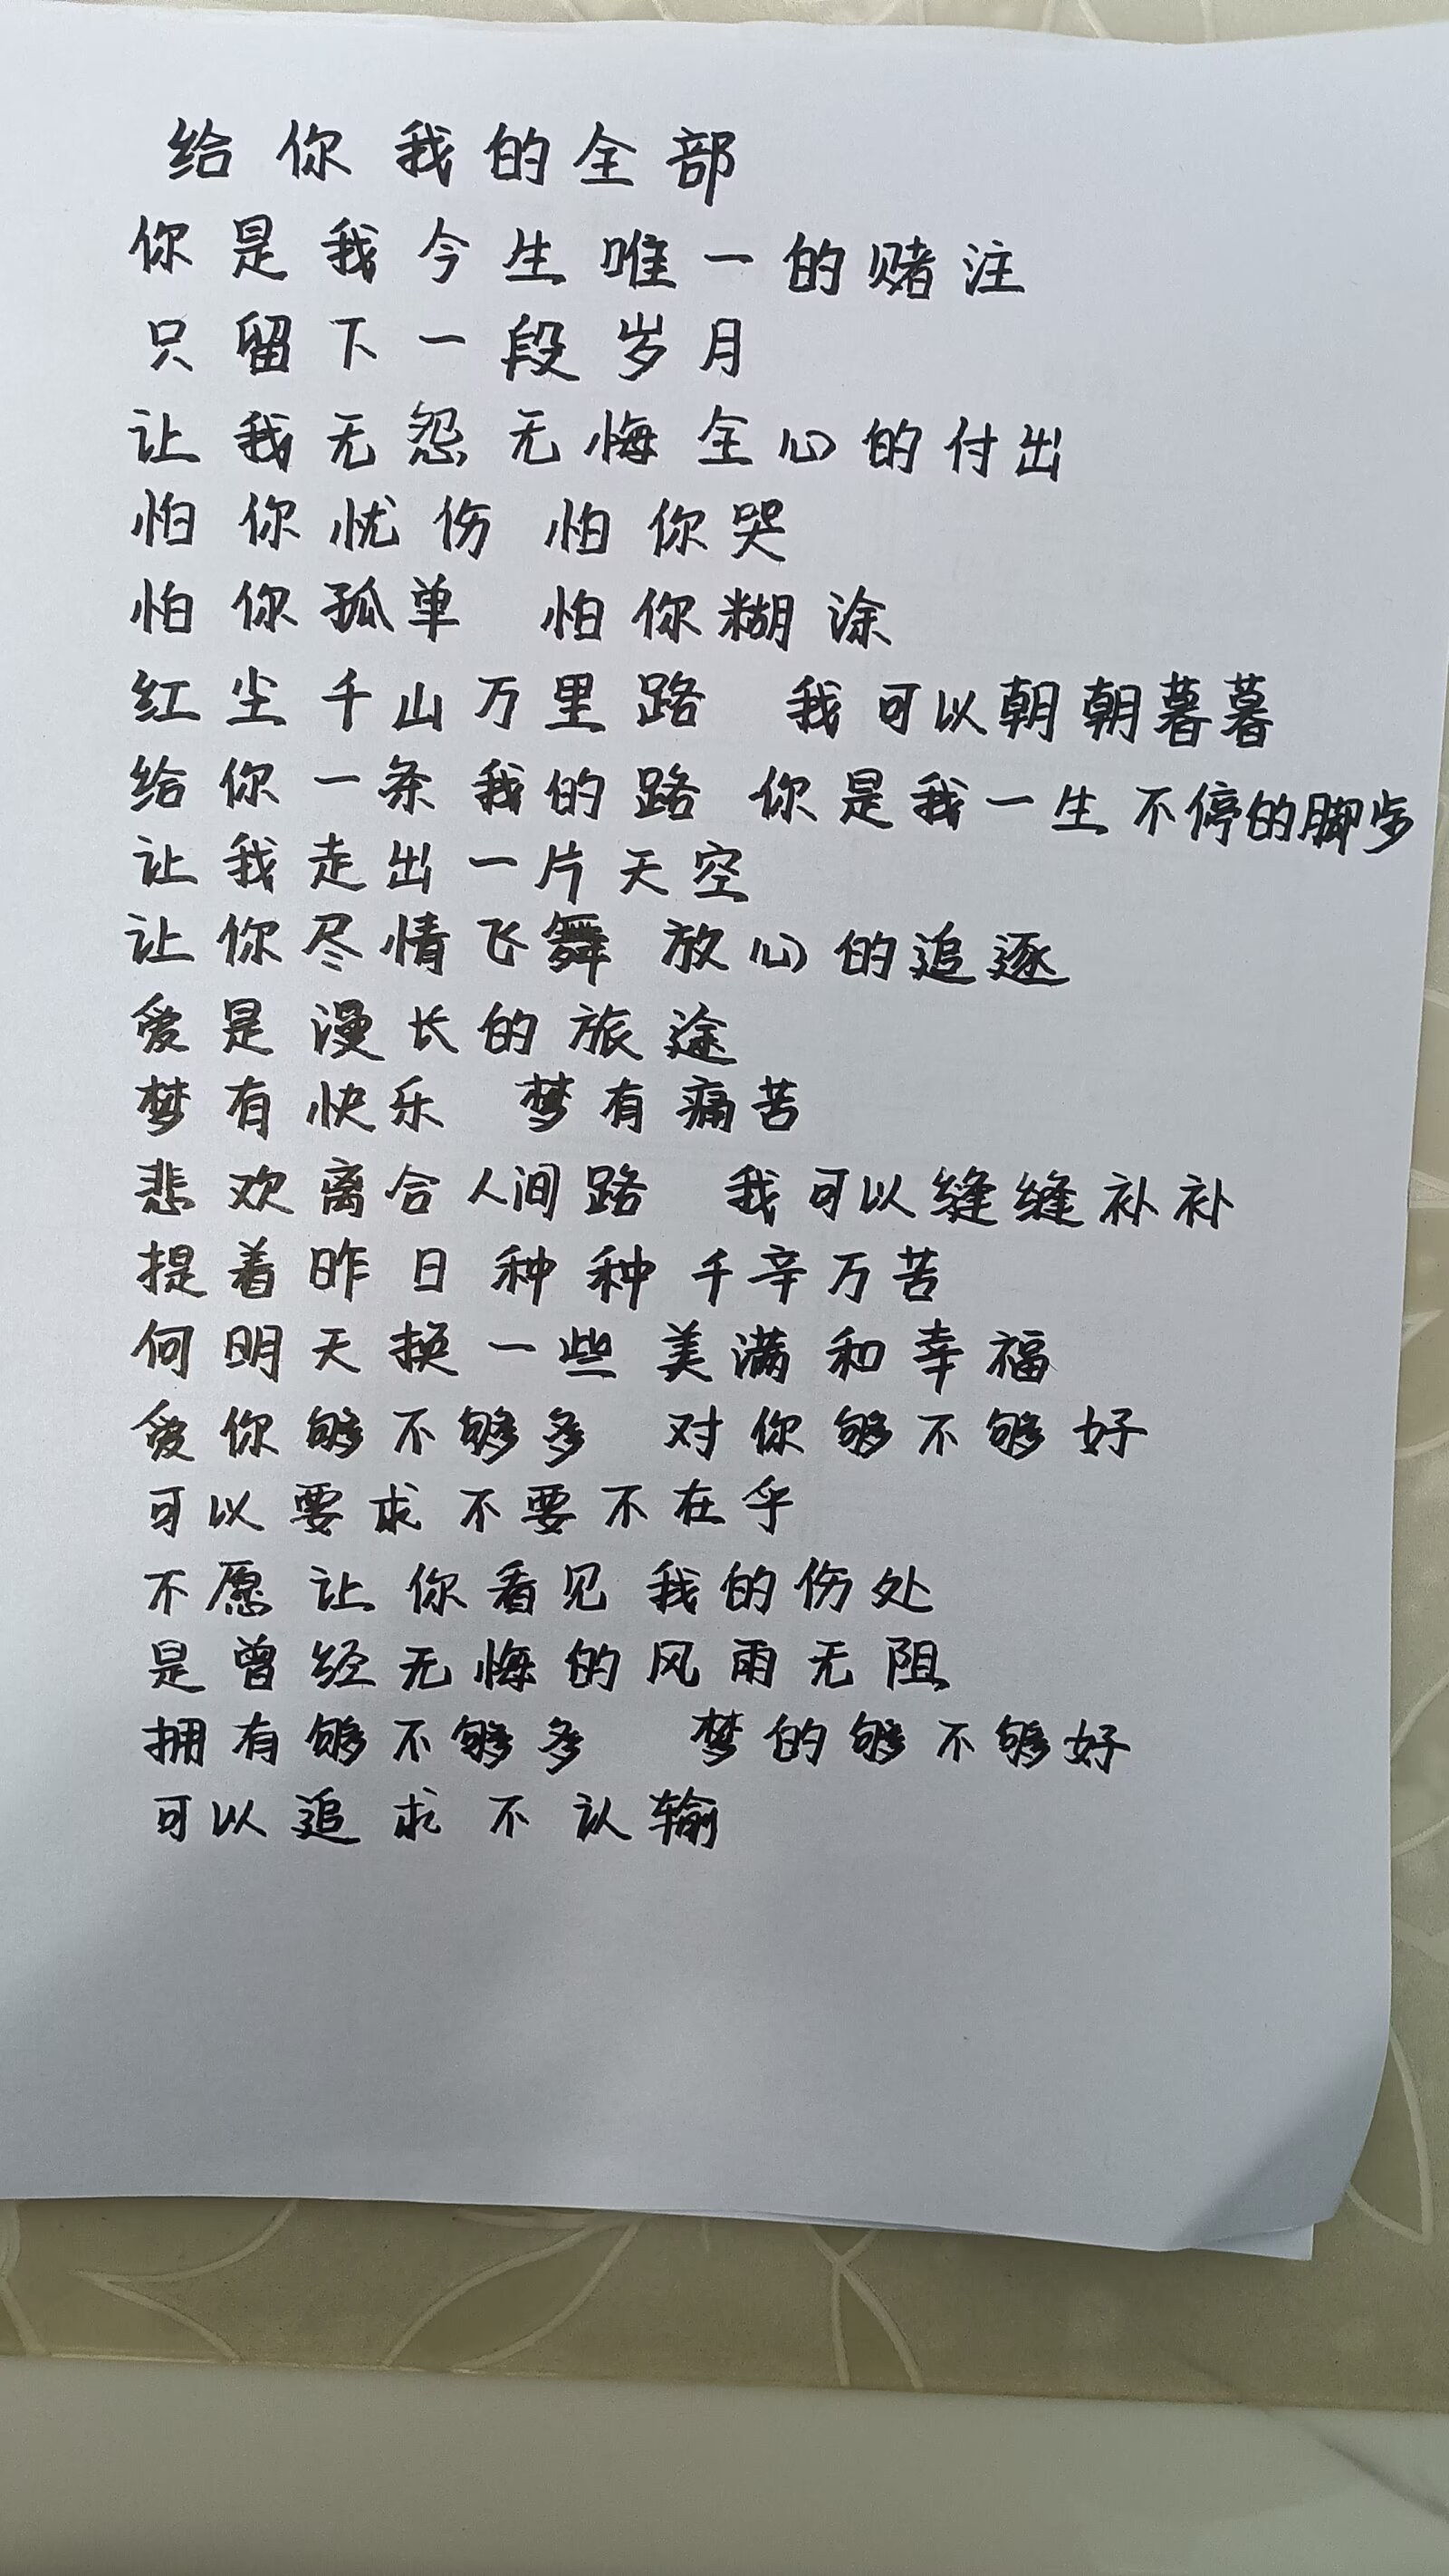 给你我的全部
你是我今生唯一的赌注
只留下一段岁月
让我无怨无悔全心的付出
怕你忧伤 怕你哭
怕你孤单 怕你糊涂
红尘千山万里路 我可以朝朝暮暮
给你一条我的路 你是我一生不停的脚步
让我走出一片天空
让你尽情飞舞 放心的追逐
爱是漫长的旅途
梦有快乐 梦有痛苦
悲欢离合人间路 我可以缝缝补补
提着昨日种种千辛万苦
何明天换一些美满和幸福
爱你够不够多 对你够不够好
可以要求不要不在乎
不愿让你看见我的伤处
是曾经无悔的风雨无阻
拥有够不够多 梦的够不够好
可以追求不认输